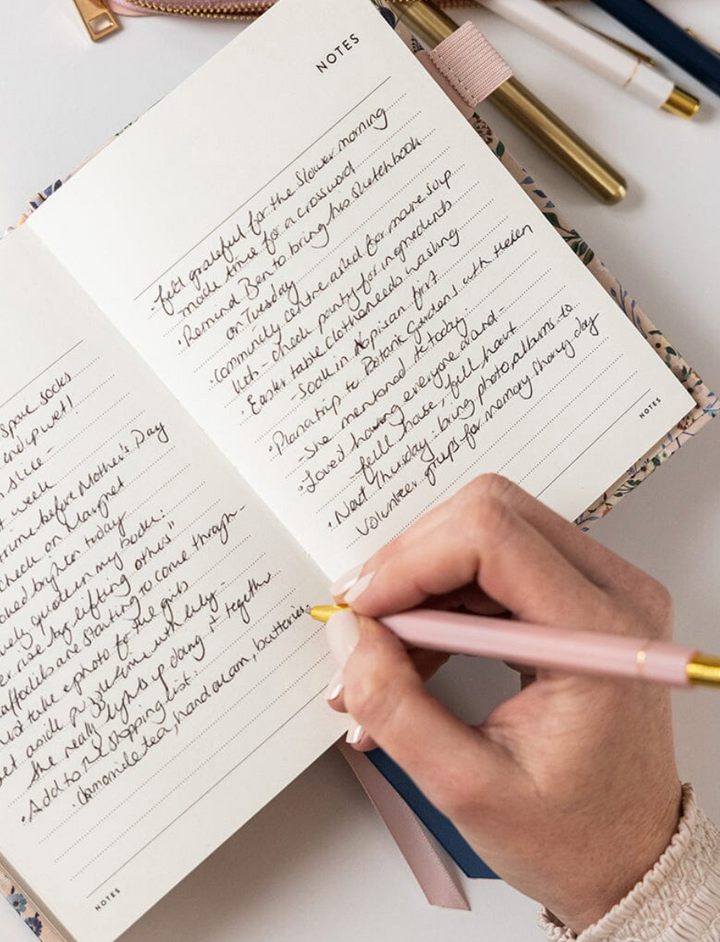 Spare socks
and pivet!
n slice-
t week
time before Mother's Day
check on Margret
looked brighter today
lovely quote in my book:
"We rise by lifting others"
Daffodils are starting to come through-
must take a photo for the girls
Set aside puzzle time with Lily-
she really enjoys doing it together
• Add to shopping list:
- Camomile tea, hand cream, batteries
NOTES
NOTES
- felt grateful for the slower morning
made time for a crossword
• Remind Ben to bring his sketchbook
on Tuesday
• Community centre asked for more soup
lots - check pantry for ingredients
• Easter table clothe needs washing
- Soak in Napisan first
• Plan a trip to Botanic Gardens with Helen
- She mentioned it today
• Loved having everyone around -
- full house, full heart
• Next Thursday - bring photo albums to
volunteer group for memory sharing day
NOTES